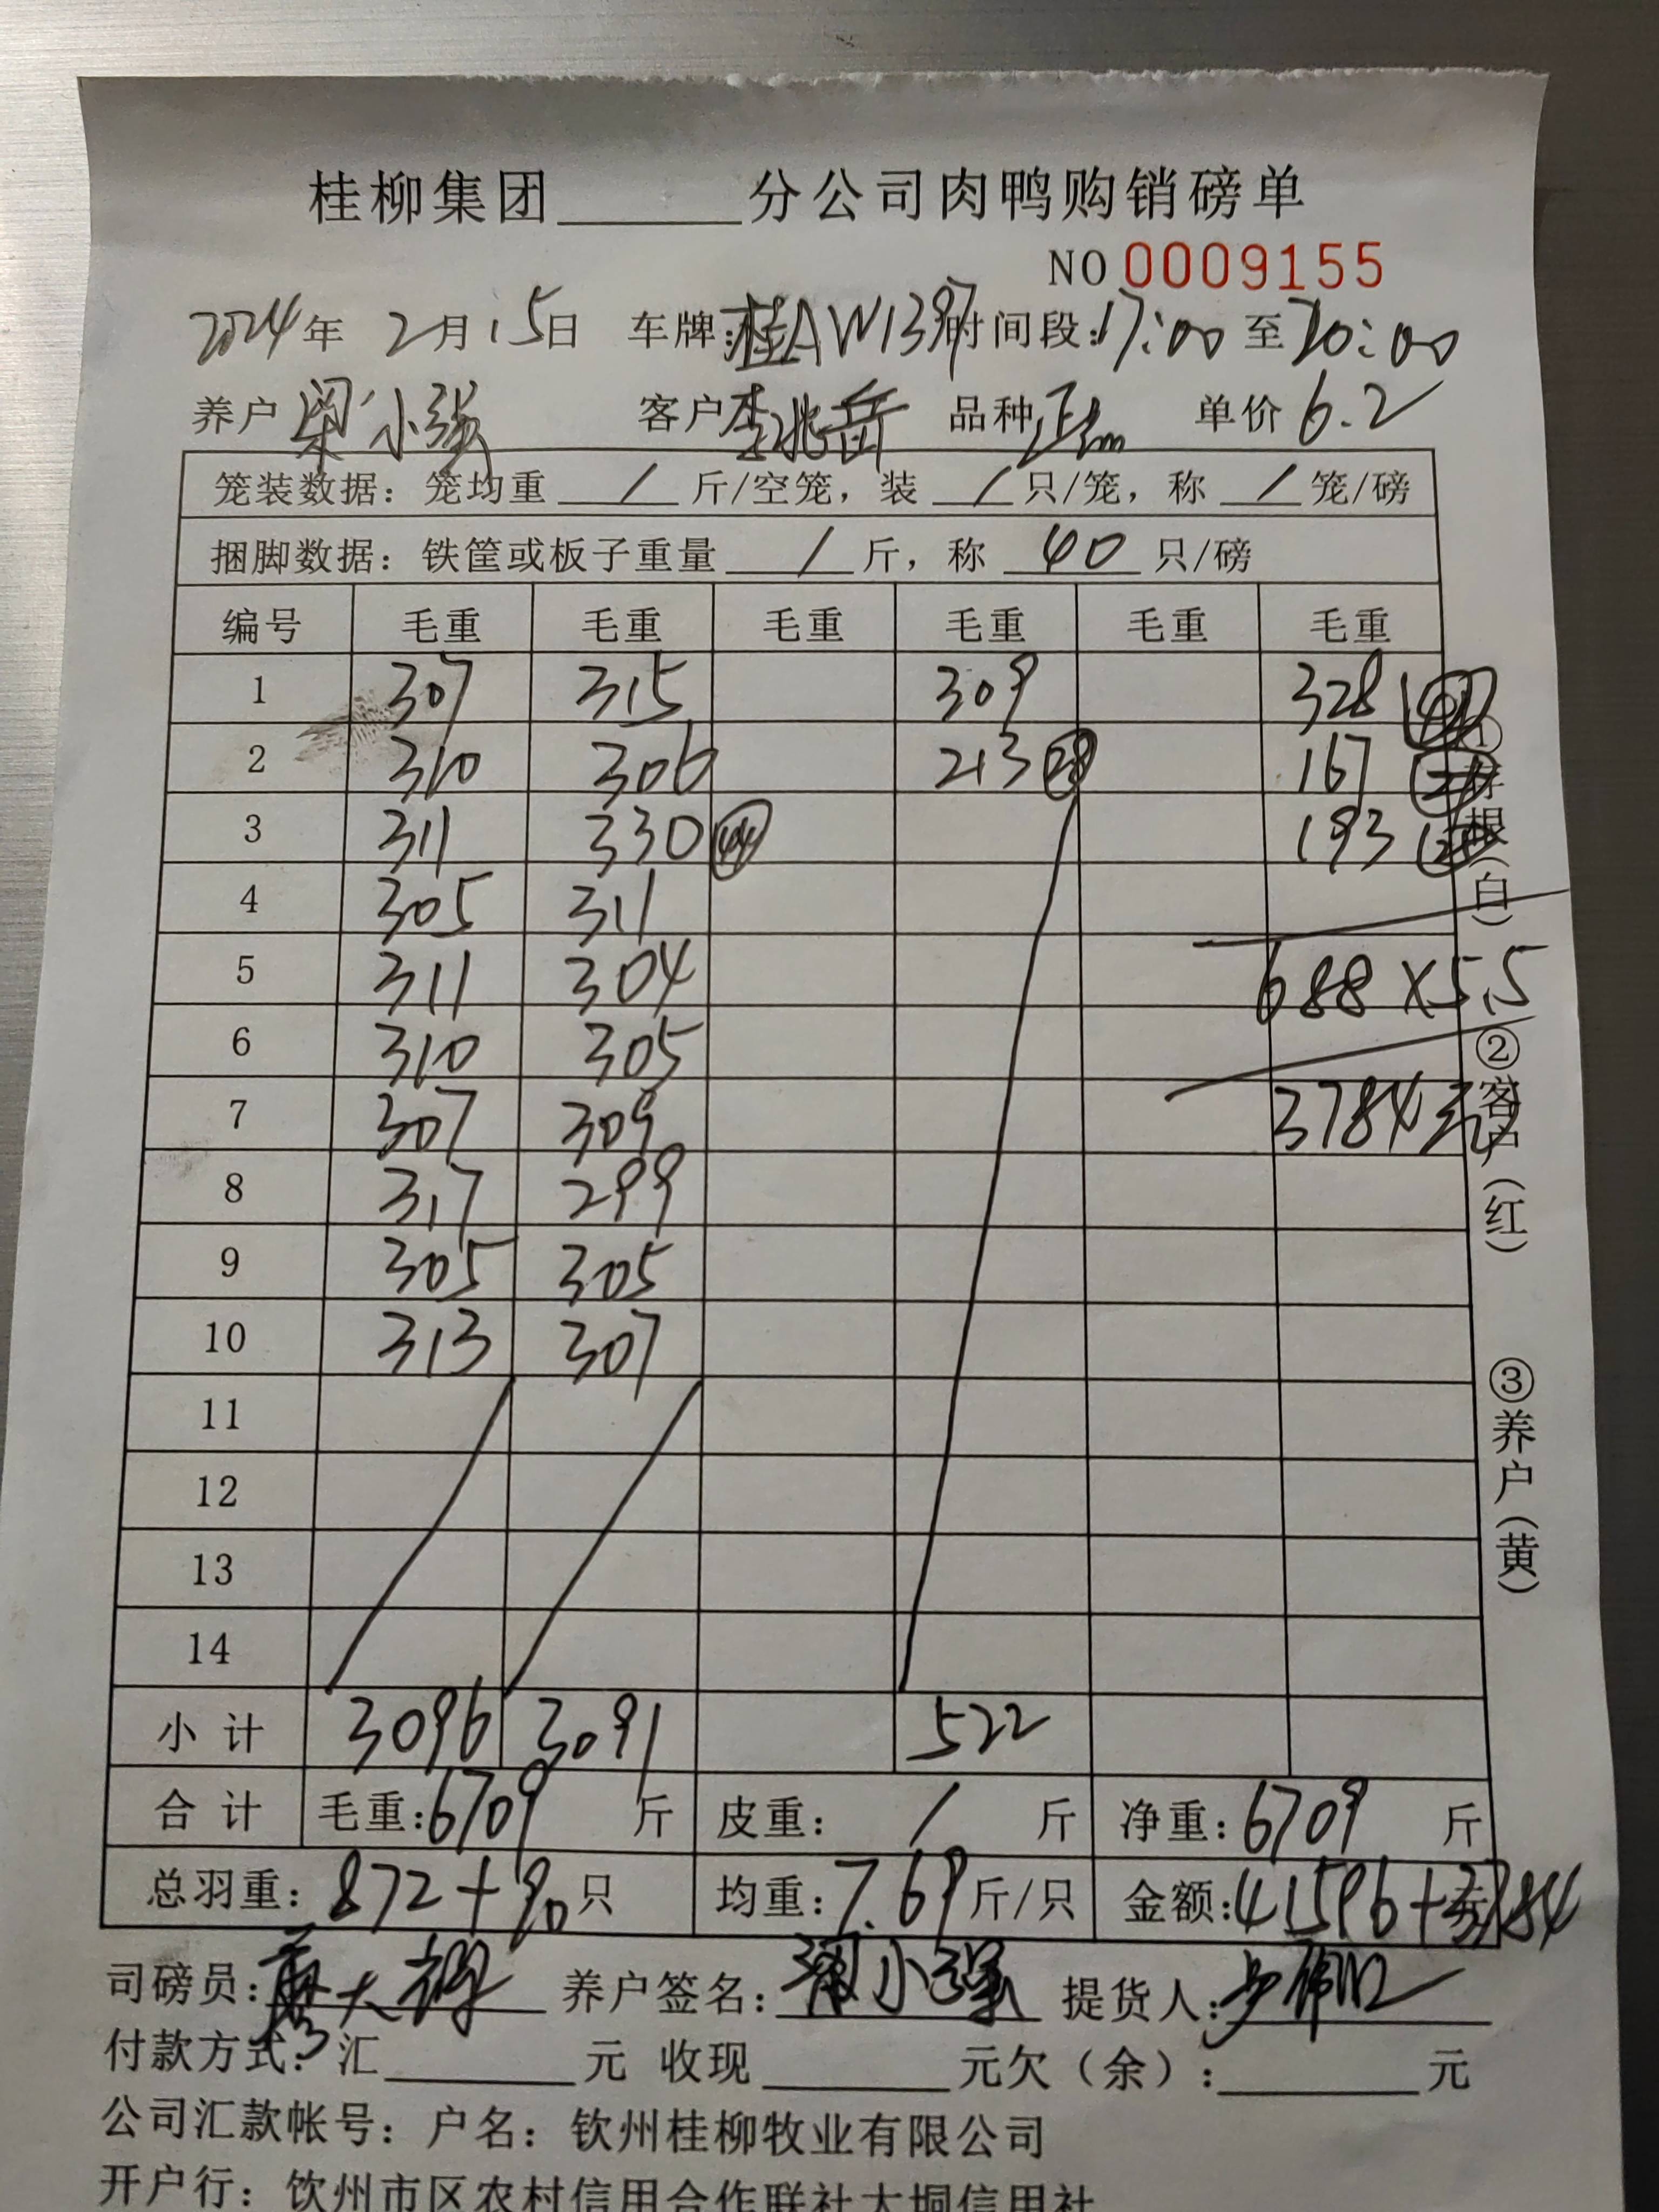 桂柳集团______分公司肉鸭购销磅单
NO 0009155
2024年 2月15日 车牌:桂AW1397 时间段:17:00 至 20:00
养户 梁小强 客户 李兆岳 品种 单价 6.2
笼装数据: 笼均重 / 斤/空笼, 装 / 只/笼, 称 / 笼/磅
捆脚数据: 铁筐或板子重量 / 斤, 称 40 只/磅
编号 毛重 毛重 毛重 毛重 毛重 毛重
1 307 315 309 328
2 310 306 213 (28) 167
3 311 330 (44) 193
4 305 311
5 311 304 688×5.5
6 310 305
7 307 309 3784元
8 317 299
9 305 305
10 313 307
11
12
13
14
小 计 3096 3091 522
合 计 毛重:6709 斤 皮重: / 斤 净重:6709 斤
总羽重: 872+90 只 均重:7.69 斤/只 金额:41596+3784
司磅员: 养户签名: 小强 提货人:
付款方式: 汇______元 收现______元欠(余):______元
公司汇款帐号: 户名: 钦州桂柳牧业有限公司
开户行: 钦州市区农村信用合作联社大垌信用社
①存根(白)
②客户(红)
③养户(黄)